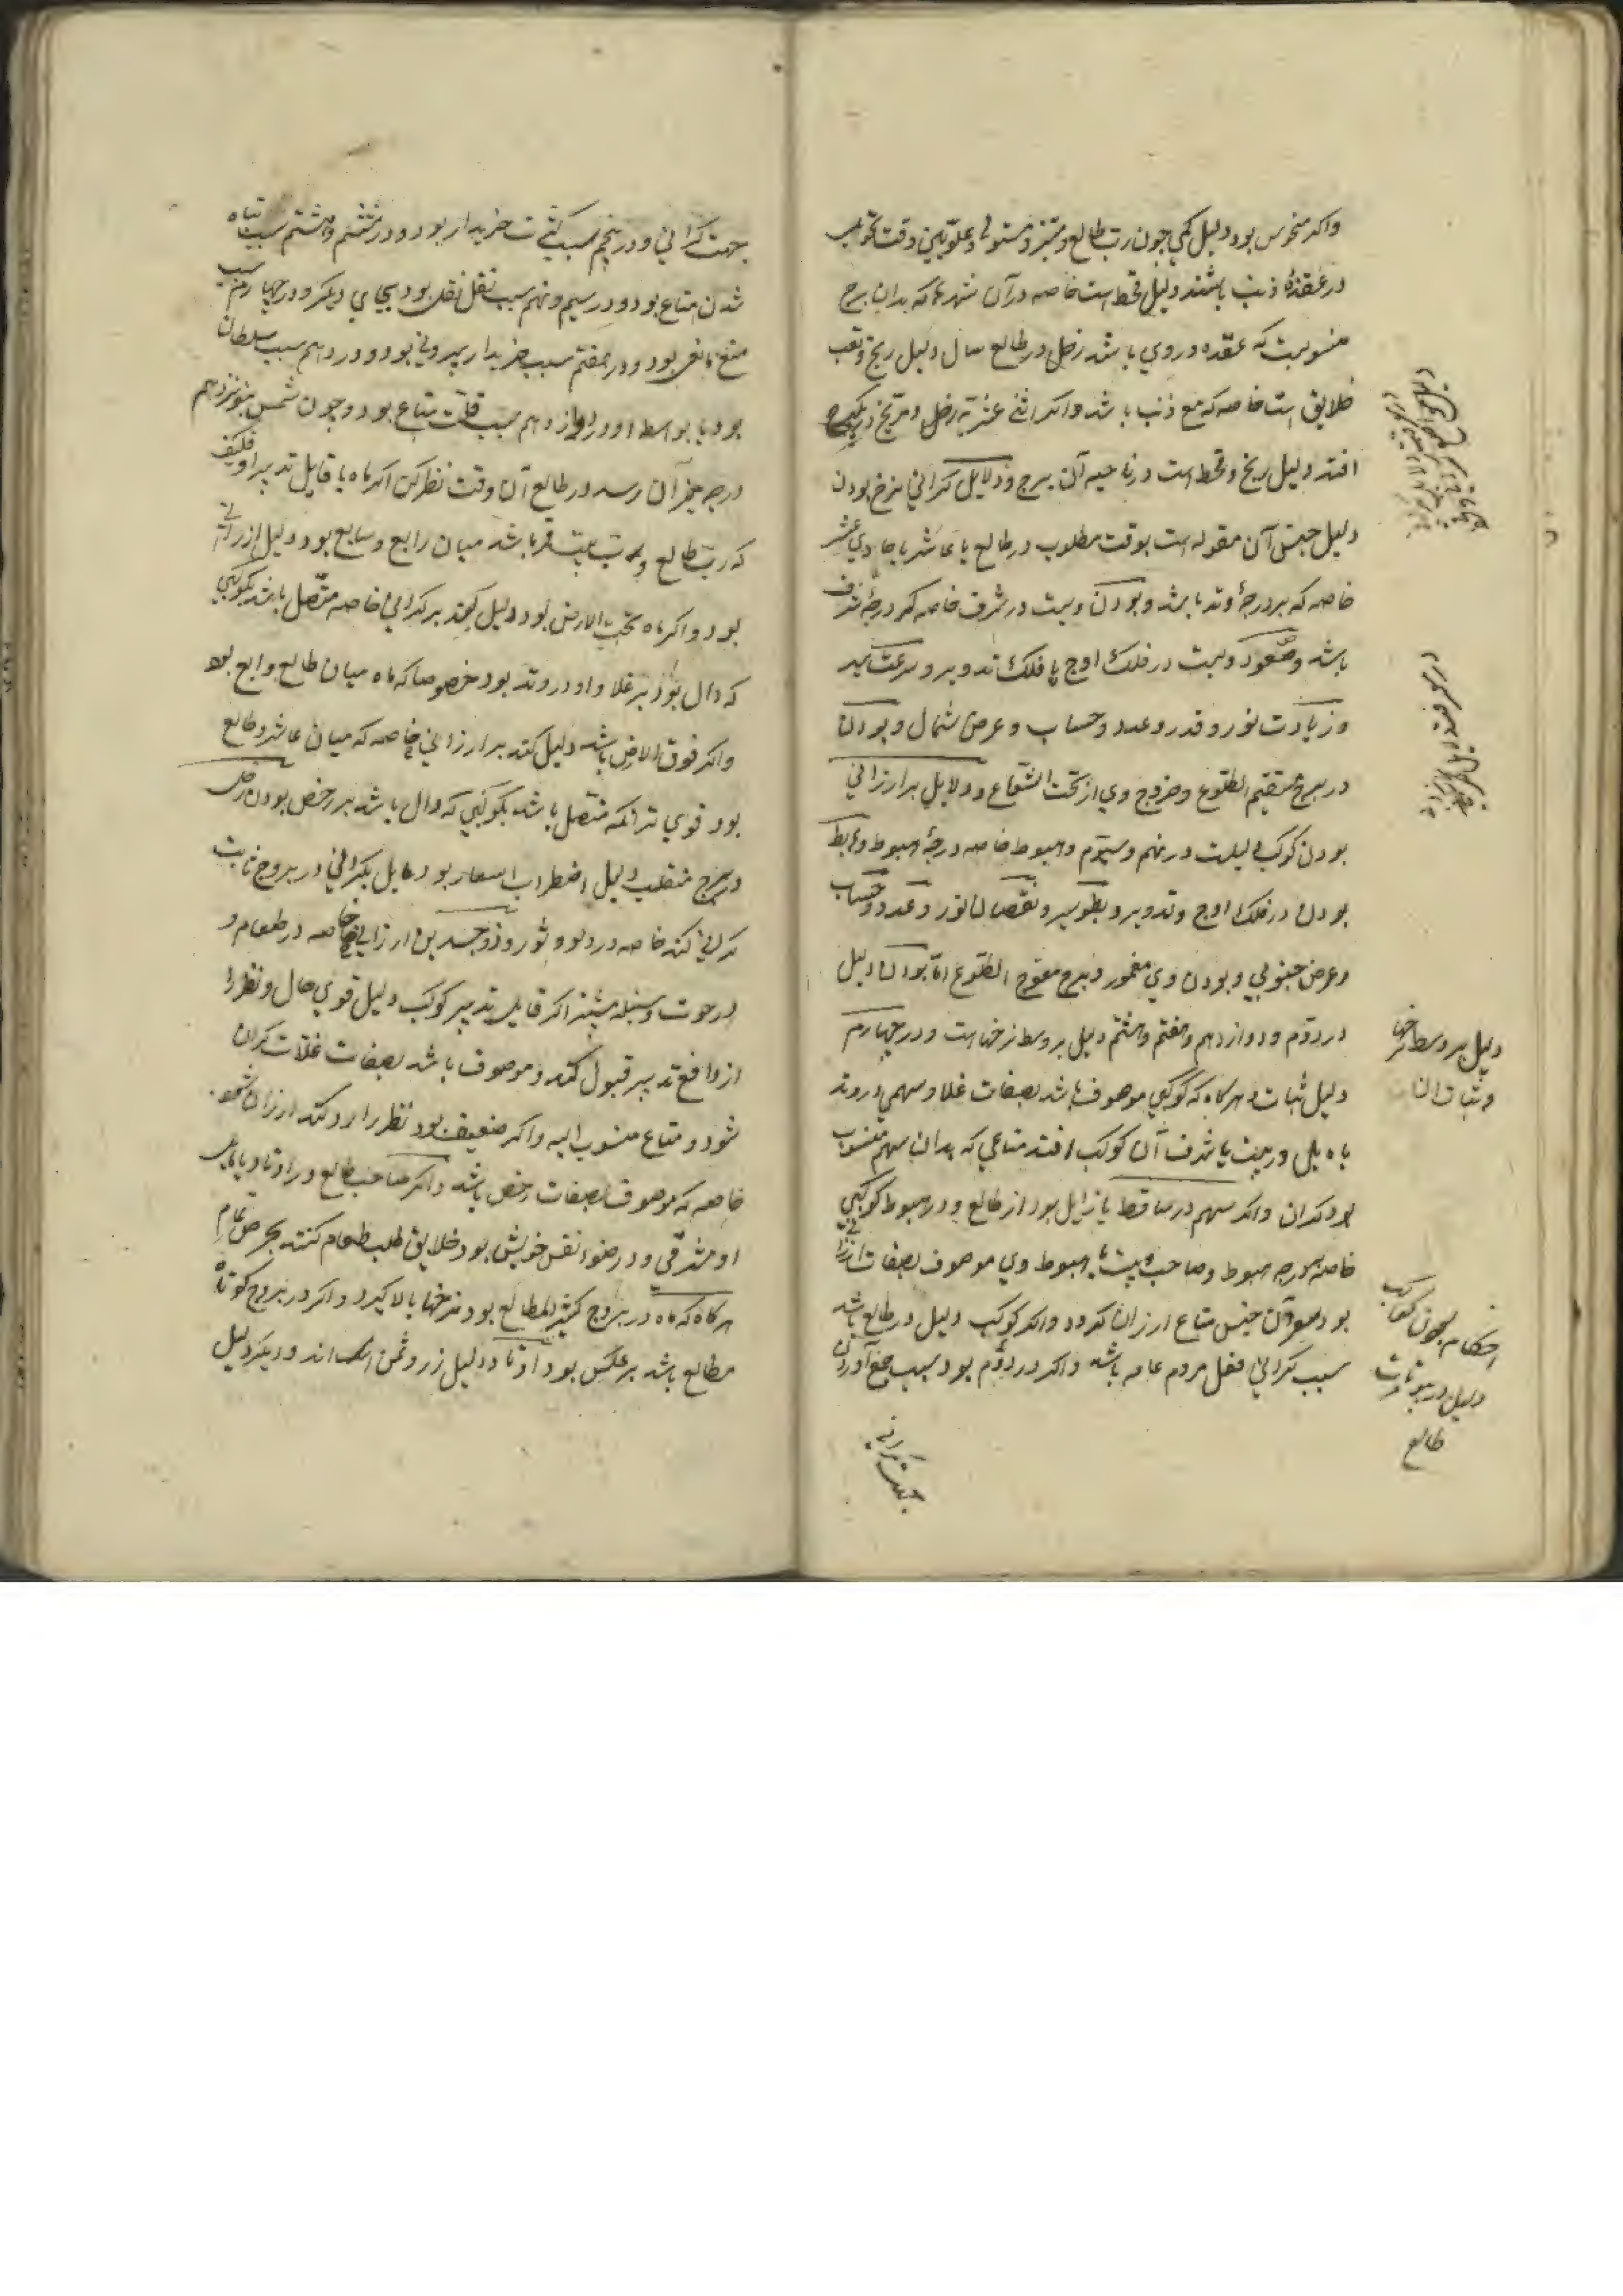 واکر منحوس بود دلیل کمی چون رب طالع و مبتز و مستولی و علویین وقت تحویل
در عقدهٔ ذنب باشند دلیل قحط است خاصه در آن شهرها که بدان برج
منسوبست که عقده در وی باشد زحل در طالع سال دلیل رنج و تعب
خلایق است خاصه که مع ذنب باشد واکر اثنی عشریه زحل و مریخ در یکبرج
افتد دلیل رنج و قحط است در ناحیه آن برج و دلایل کرانی نرخ بودن
دلیل جنس آن مقوله است بوقت مطلوب در طالع یا عاشر یا حادی عشر
خاصه که بر درجهٔ وتد باشد و بودن ویست در شرف خاصه که درجهٔ شرف
باشد و صعود ویست در فلک اوج یا فلک تدویر و سرعت سیر
و زیادت نور و قدر و عدد و حساب و عرض شمال و بودن
در برج مستقیم الطلوع و خروج وی از تحت الشعاع و دلایل بر ارزانی
بودن کوکب دلیلست در نهم و سیوم و هبوط خاصه درجهٔ هبوط و هابط
بودن در فلک اوج و تدویر و بطو سیر و نقصان نور و عدد و حساب
و عرض جنوبی و بودن وی مغمور و برج معوج الطلوع اما بودن دلیل
در دوم و دوازدهم و هفتم و هشتم دلیل بر وسط نرخهاست و در چهارم
دلیل ثبات و هرکاه که کوکبی موصوف باشد بصفات غلا و سهمی در وتد
یا مایل در بیت یا شرف آن کوکب افتد متاعی که بدان سهم منسوب
بود کران واکر سهم در ساقط یا زایل بود از طالع و در هبوط کوکبی
خاصه درجه هبوط و صاحب بیت یا هبوط وی موصوف بصفات ارزانی
بود آن جنس متاع ارزان کردد واکر کوکب دلیل در طالع باشد
سبب کرانی فعل مردم عامه باشد واکر در دوم بود سبب جمع آوردن
جهت کرانی
دلیل بر وسط نرخها
و ثبات آن
احکام چون کواکب
دلیل در بیوتات
طالع
جهت کرانی و در پنجم سبب خریدار بود و در ششم و هشتم سبب تباه
شدن متاع بود و در سیم و نهم سبب نقل نقل بود بجای دیکر و در چهارم سبب
منع مانعی بود و در هفتم سبب خریدار بیرونی بود و در دهم سبب سلطان
بود یا بواسط او و در یازدهم سبب قلت متاع بود و چون شمس بنوزدهم
درجه میزان رسد در طالع آن وقت نظر کن اکر ماه یا قابل تدبیر او
که رب طالع و رب بیت قمر باشد میان رابع و سابع بود دلیل ارزانی
بود واکر ماه تحت الارض بود دلیل کند بر کرانی خاصه متصل باشد بکوکبی
که دال بود بر غلا و او در وتد بود خصوصا که ماه میان طالع و رابع بود
واکر فوق الارض باشد دلیل کند بر ارزانی خاصه که میان عاشر و طالع
بود قوی تر انکه متصل باشد بکوکبی که دال باشد بر رخص بودن زحل
در برج منقلب دلیل اضطراب اسعار بود مایل بکرانی در بروج ثابت
کرانی کند خاصه در دلو و ثور و ذوجسدین ارزانی خاصه در طعام و
در حوت و سنبله بیشتر اکر قابل تدبیر کوکب دلیل قوی حال و نظر را
از دافع تدبیر قبول کند و موصوف باشد بصفات غلات کران
شود و متاع منسوب الیه واکر ضعیف بود نظر را رد کند ارزان شود
خاصه که موصوف بصفات رخص باشد واکر صاحب طالع در اوتاد یا مایل
او مشرقی و در ضوء نفس خویش بود خلایق طلب طعام کنند بحرص تمام
هرکاه که ماه در بروج کثیر المطالع بود نرخها بالا کیرد واکر در بروج کوتاه
مطالع باشد بر عکس بود اوتاد دلیل زر و ثمن اند و دیکر دلیل